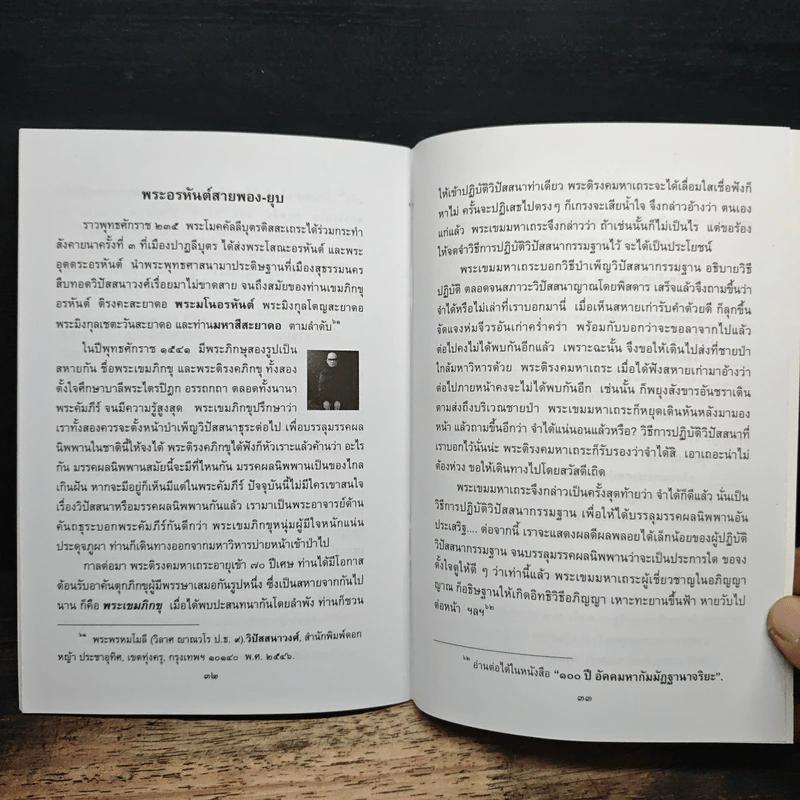 พระอรหันต์สายพอง-ยุบ
ราวพุทธศักราช ๒๓๕ พระโมคคัลลีบุตรติสสะเถระได้ร่วมกระทำ
สังคายนาครั้งที่ ๓ ที่เมืองปาฏลีบุตร ได้ส่งพระโสณะอรหันต์ และพระ
อุตตระอรหันต์ นำพระพุทธศาสนามาประดิษฐานที่เมืองสุธรรมนคร
สืบทอดวิปัสสนาวงศ์เรื่อยมาไม่ขาดสาย จนถึงสมัยของท่านเขมภิกขุ
อรหันต์ ติรงคะสะยาดอ พระมโนอรหันต์ พระมิงกุลโตญสะยาดอ
พระมิงกุลเชตะวันสะยาดอ และท่านมหาสีสะยาดอ ตามลำดับ๖๑
ในปีพุทธศักราช ๑๕๔๑ มีพระภิกษุสองรูปเป็น
สหายกัน ชื่อพระเขมภิกขุ และพระติรงคภิกขุ ทั้งสอง
ตั้งใจศึกษาบาลีพระไตรปิฎก อรรถกถา ตลอดทั้งนานา
พระคัมภีร์ จนมีความรู้สูงสุด พระเขมภิกขุปรึกษาว่า
เราทั้งสองควรจะตั้งหน้าบำเพ็ญวิปัสสนาธุระต่อไป เพื่อบรรลุมรรคผล
นิพพานในชาตินี้ให้จงได้ พระติรงคภิกขุได้ฟังก็หัวเราะแล้วค้านว่า อะไร
กัน มรรคผลนิพพานสมัยนี้จะมีที่ไหนกัน มรรคผลนิพพานเป็นของไกล
เกินฝัน หากจะมีอยู่ก็เห็นมีแต่ในพระคัมภีร์ ปัจจุบันนี้ไม่มีใครเขาสนใจ
เรื่องวิปัสสนาหรือมรรคผลนิพพานกันแล้ว เรามาเป็นพระอาจารย์ด้าน
คันถธุระบอกพระคัมภีร์กันดีกว่า พระเขมภิกขุหนุ่มผู้มีใจหนักแน่น
ประดุจภูผา ท่านก็เดินทางออกจากมหาวิหารบ่ายหน้าเข้าป่าไป
กาลต่อมา พระติรงคมหาเถระอายุเข้า ๗๐ ปีเศษ ท่านได้มีโอกาส
ต้อนรับอาคันตุกภิกขุผู้มีพรรษาเสมอกันรูปหนึ่ง ซึ่งเป็นสหายจากกันไป
นาน ก็คือ พระเขมภิกขุ เมื่อได้พบปะสนทนากันโดยลำพัง ท่านก็ชวน
๖๑ พระพรหมโมลี (วิลาศ ญาณวโร ป.ธ. ๙).วิปัสสนาวงศ์, สำนักพิมพ์ดอก
หญ้า ประชาอุทิศ, เขตทุ่งครุ, กรุงเทพฯ ๑๐๑๔๐ พ.ศ. ๒๕๔๖.
๓๒
ให้เข้าปฏิบัติวิปัสสนาท่าเดียว พระติรงคมหาเถระจะได้เลื่อมใสเชื่อฟังก็
หาไม่ ครั้นจะปฏิเสธไปตรงๆ ก็เกรงจะเสียน้ำใจ จึงกล่าวอ้างว่า ตนเอง
แก่แล้ว พระเขมมหาเถระจึงกล่าวว่า ถ้าเช่นนั้นก็ไม่เป็นไร แต่ขอร้อง
ให้จดจำวิธีการปฏิบัติวิปัสสนากรรมฐานไว้ จะได้เป็นประโยชน์
พระเขมมหาเถระบอกวิธีบำเพ็ญวิปัสสนากรรมฐาน อธิบายวิธี
ปฏิบัติ ตลอดจนสภาวะวิปัสสนาญาณโดยพิสดาร เสร็จแล้วจึงถามขึ้นว่า
จำได้หรือไม่เล่าที่เราบอกมานี้ เมื่อเห็นสหายเก่ารับคำด้วยดี ก็ลุกขึ้น
จัดแจงห่มจีวรอันเก่าคร่ำคร่า พร้อมกับบอกว่าจะขอลาจากไปแล้ว
ต่อไปคงไม่ได้พบกันอีกแล้ว เพราะฉะนั้น จึงขอให้เดินไปส่งที่ชายป่า
ใกล้มหาวิหารด้วย พระติรงคมหาเถระ เมื่อได้ฟังสหายเก่ามาอ้างว่า
ต่อไปภายหน้าคงจะไม่ได้พบกันอีก เช่นนั้น ก็พยุงสังขารอันชราเดิน
ตามส่งถึงบริเวณชายป่า พระเขมมหาเถระก็หยุดเดินหันหลังมามอง
หน้า แล้วถามขึ้นอีกว่า จำได้แน่นอนแล้วหรือ? วิธีการปฏิบัติวิปัสสนาที่
เราบอกไว้นั่นน่ะ พระติรงคมหาเถระก็รับรองว่าจำได้สิ เอาเถอะน่าไม่
ต้องห่วง ขอให้เดินทางไปโดยสวัสดีเถิด
พระเขมมหาเถระจึงกล่าวเป็นครั้งสุดท้ายว่า จำได้ก็ดีแล้ว นั่นเป็น
วิธีการปฏิบัติวิปัสสนากรรมฐาน เพื่อให้ได้บรรลุมรรคผลนิพพานอัน
ประเสริฐ.... ต่อจากนี้ เราจะแสดงผลดีผลพลอยได้เล็กน้อยของผู้ปฏิบัติ
วิปัสสนากรรมฐาน จนบรรลุมรรคผลนิพพานว่าจะเป็นประการใด ขอจง
ตั้งใจดูให้ดี ๆ ว่าเท่านี้แล้ว พระเขมมหาเถระผู้เชี่ยวชาญในอภิญญา
ญาณ ก็อธิษฐานให้เกิดอิทธิวิธีอภิญญา เหาะทะยานขึ้นฟ้า หายวับไป
ต่อหน้า ฯลฯ๖๒
๖๒ อ่านต่อได้ในหนังสือ “๑๐๐ ปี อัคคมหากัมมัฏฐานาจริยะ”.
๓๓